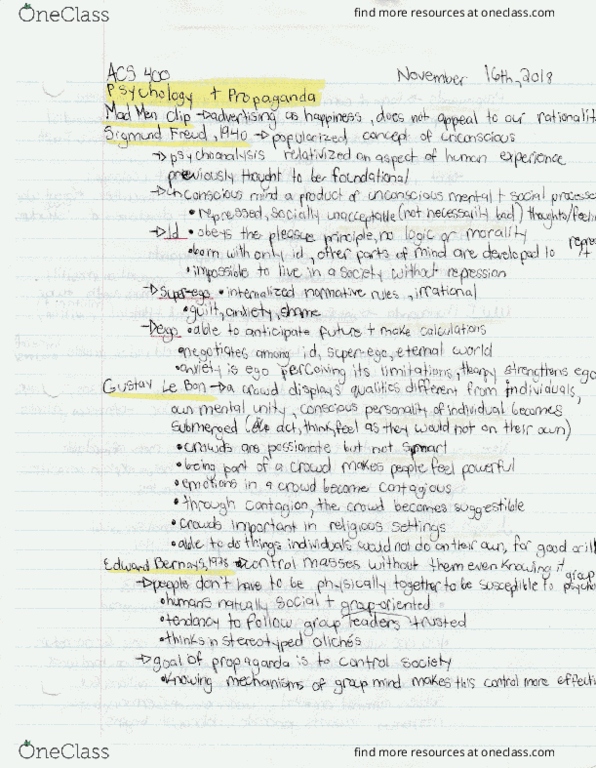 OneClass
find more resources at oneclass.com
ACS 400
November 16th, 2018
Psychology + Propaganda
Mad Men clip → advertising as happiness, does not appeal to our rationalit
Sigmund Freud, 1940 → popularized concept of unconscious
→ psychoanalysis relativized an aspect of human experience
previously thought to be foundational
→ unconscious mind a product of unconscious mental + social processe
• repressed, socially unacceptable (not necessarily bad) thoughts/feelin
→ Id • obeys the pleasure principle, no logic or morality
• born with only id, other parts of mind are developed to repre
• impossible to live in a society without repression
→ Super-ego • internalized normative rules, irrational
• guilt, anxiety, shame
→ ego • able to anticipate future + make calculations
• negotiates among id, super-ego, eternal world
• anxiety is ego perceiving its limitations, therapy strengthens ego
Gustav Le Bon → a crowd displays qualities different from individuals,
own mental unity, conscious personality of individual becomes
submerged ( act, think, feel as they would not on their own)
• crowds are passionate but not smart
• being part of a crowd makes people feel powerful
• emotions in a crowd become contagious
• through contagion, the crowd becomes suggestible
• crowds important in religious settings
• able to do things individuals would not do on their own, for good or ill
Edward Bernays, 1928 → control masses without them even knowing it
→ people don't have to be physically together to be susceptible to group psycho
• humans natually social + group-oriented
• tendency to follow group leaders trusted
• thinks in stereotyped clichés
→ goal of propaganda is to control society
• knowing mechanisms of group mind makes this control more effecti
OneClass
find more resources at oneclass.com